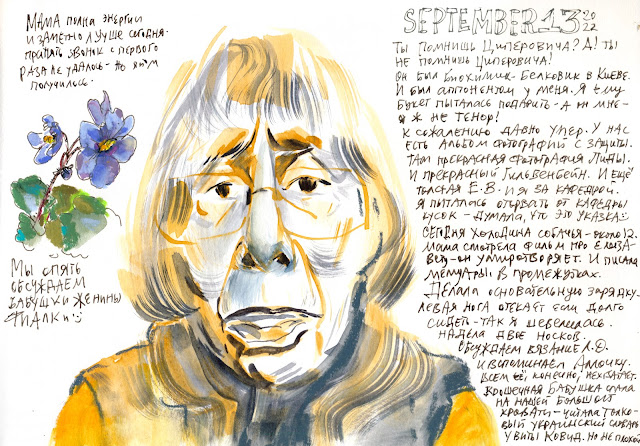 МАМА ПОЛНА ЭНЕРГИИ
И ЗАМЕТНО ЛУЧШЕ СЕГОДНЯ.
ЗВОНОК С ПЕРВОГО
РАЗА НЕ УДАЛОСЬ - НО ПОТОМ
ПОЛУЧИЛОСЬ.
МЫ ОПЯТЬ
ОБСУЖДАЕМ
БАБУШКИ ЖЕНИНЫ
ФИАЛКИ
SEPTEMBER 13 2022
ТЫ ПОМНИШЬ ЦИПЕРОВИЧА? А! ТЫ
НЕ ПОМНИШЬ ЦИПЕРОВИЧА!
ОН БЫЛ БИОХИМИК-БЕЛКОВИК В КИЕВЕ.
И БЫЛ ОППОНЕНТОМ У МЕНЯ. Я ЕМУ
БУКЕТ ПЫТАЛАСЬ ПОДАРИТЬ - А ОН МНЕ -
Я Ж НЕ ТЕНОР!
К СОЖАЛЕНИЮ ДАВНО УМЕР. У НАС
ЕСТЬ АЛЬБОМ ФОТОГРАФИЙ С ЗАЩИТЫ.
ТАМ ПРЕКРАСНАЯ ФОТОГРАФИЯ ЛИДЫ.
И ПРЕКРАСНЫЙ ГИЛЬБЕНБЕЙН. И ЕЩЁ
ТОЛСТАЯ Е.В. И Я ЗА КАФЕДРОЙ.
Я ПЫТАЛАСЬ ОТОРВАТЬ ОТ КАФЕДРЫ
КУСОК - ДУМАЛА, ЧТО ЭТО УКАЗКА
СЕГОДНЯ ХОЛОДИНА СОБАЧЬЯ - ОКОЛО 12.
МАМА СМОТРЕЛА ФИЛЬМ ПРО ЕЛИЗА-
ВЕТУ - ОН УМИРОТВОРЯЕТ. И ПИСАЛА
МЕМУАРЫ В ПРОМЕЖУТКАХ.
ДЕЛАЛА ОСНОВАТЕЛЬНУЮ ЗАРЯДКУ.
ЛЕВАЯ НОГА ОТЕКАЕТ ЕСЛИ ДОЛГО
СИДЕТЬ - ТАК Я ШЕВЕЛИЛАСЬ.
НАДЕЛА ДВОЕ НОСКОВ.
ОБСУЖДАЕМ ВЯЗАНИЕ Л.Ф.
И ВСПОМИНАЕМ АЛЛОЧКУ.
ВСЕМ ЕЁ, КОНЕЧНО, НЕХВАТАЕТ.
КРОШЕЧНАЯ БАБУШКА СПАЛА
НА НАШЕЙ БОЛЬШОЙ
КРОВАТИ - ЧИТАЛА ТОЛКО-
ВЫЙ УКРАИНСКИЙ СЛОВАРЬ
КОВИД. НО НЕ